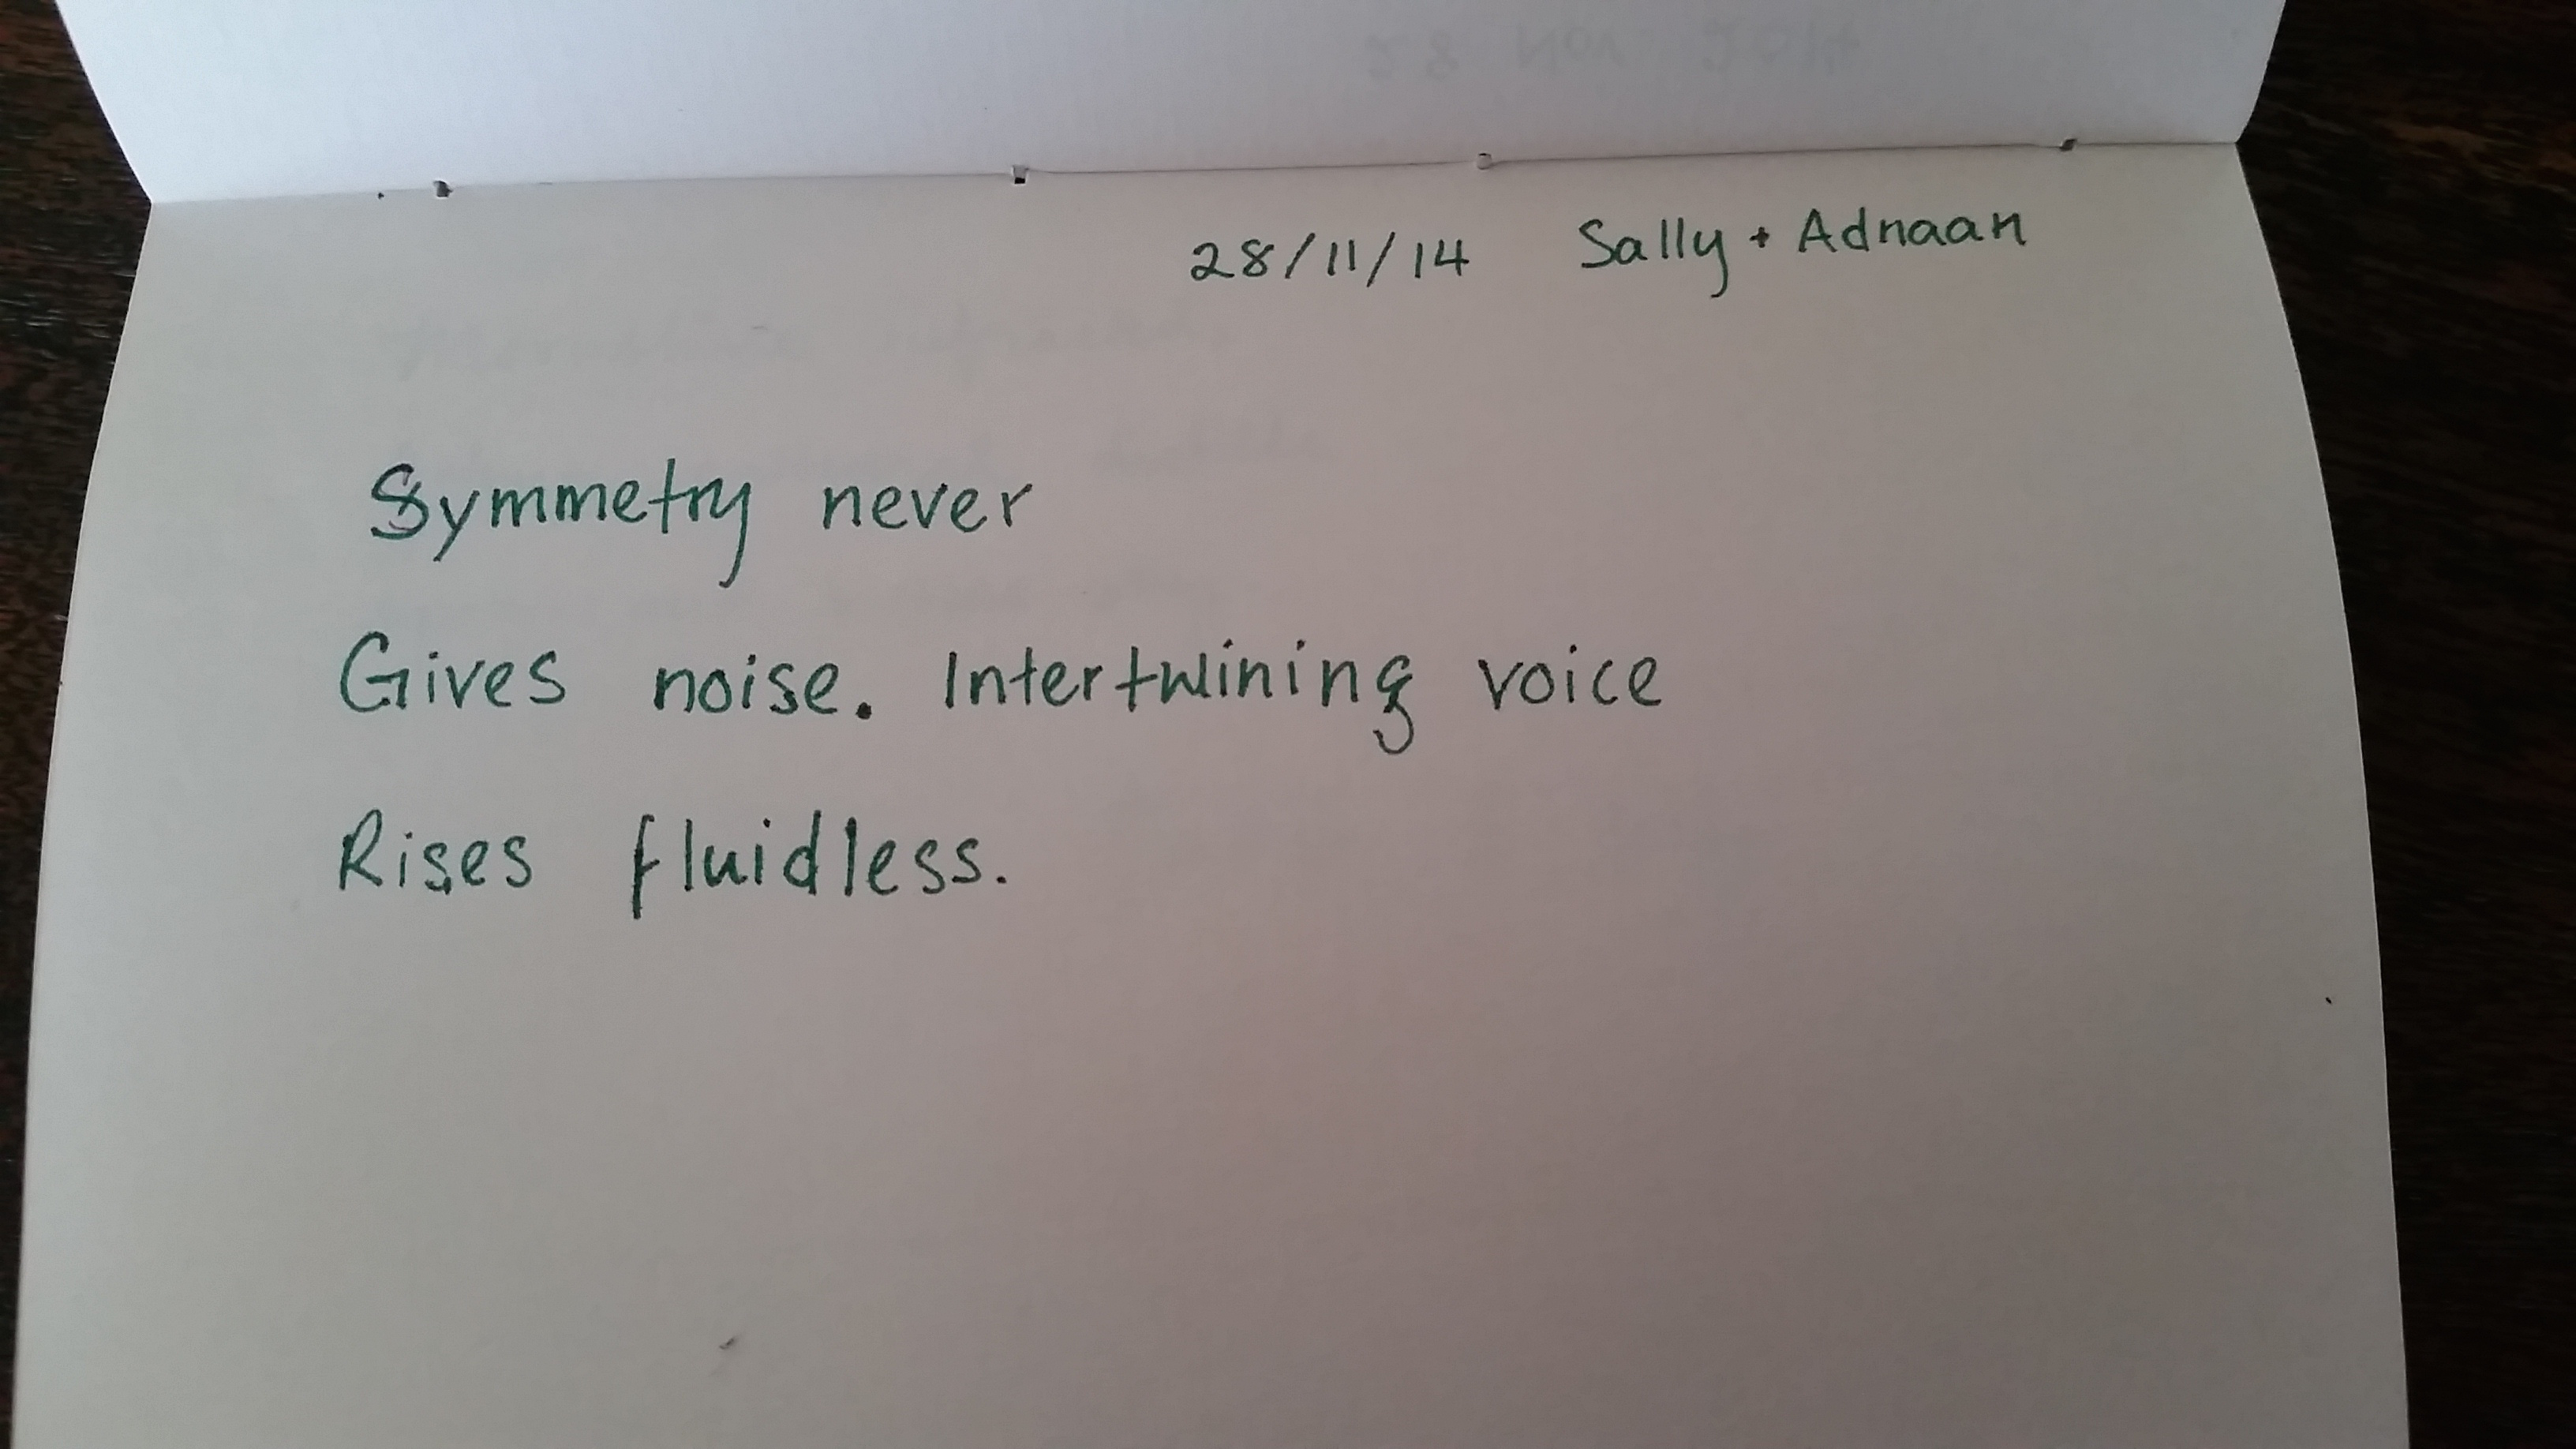 28 Nov 2014
28/11/14 Sally + Adnaan
Symmetry never
Gives noise. Intertwining voice
Rises fluidless.